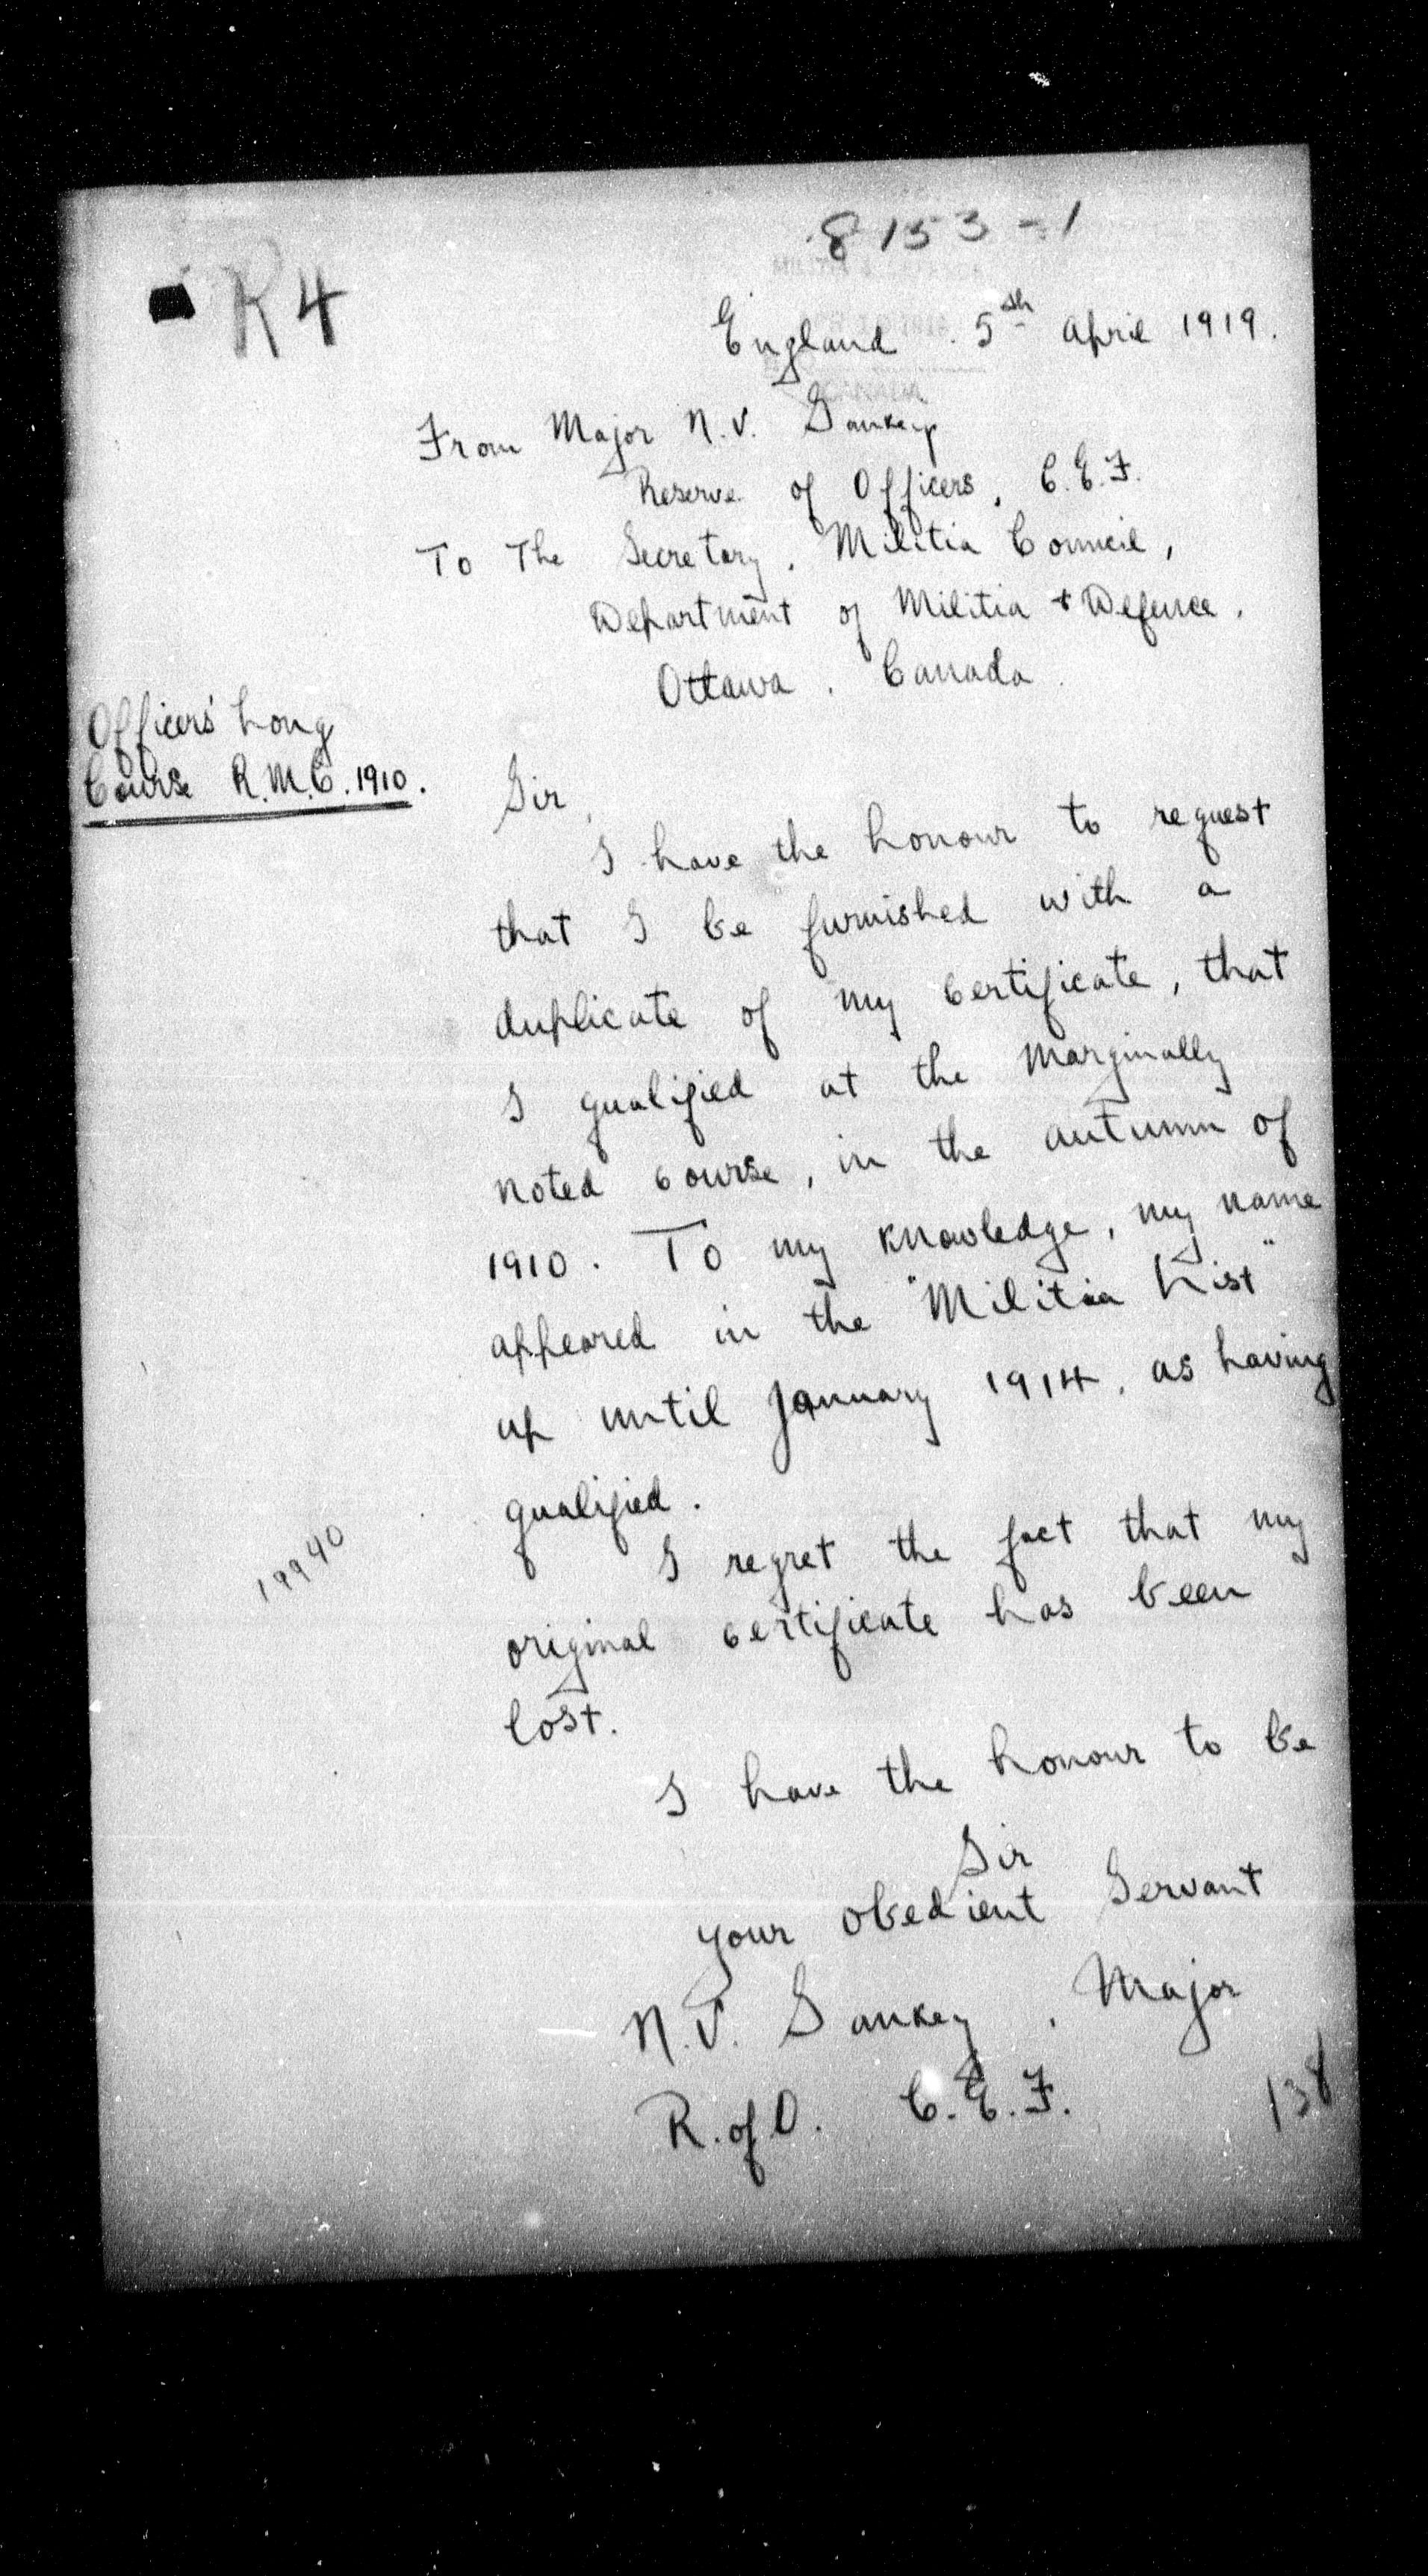 8153-1
R4
England. 5th April 1919.
From Major N.V. Sankey
Reserve of Officers, C.E.F.
To The Secretary, Militia Council,
Department of Militia + Defence,
Ottawa. Canada.
Officers' Long
Course R.M.C. 1910.
Sir,
I have the honour to request
that I be furnished with a
duplicate of my certificate, that
I qualified at the marginally
noted course, in the autumn of
1910. To my knowledge, my name
appeared in the "Militia List"
up until January 1914, as having
qualified.
I regret the fact that my
19940
original certificate has been
lost.
I have the honour to be
Sir
your obedient Servant
N.V. Sankey, Major
R. of O. C.E.F.
138